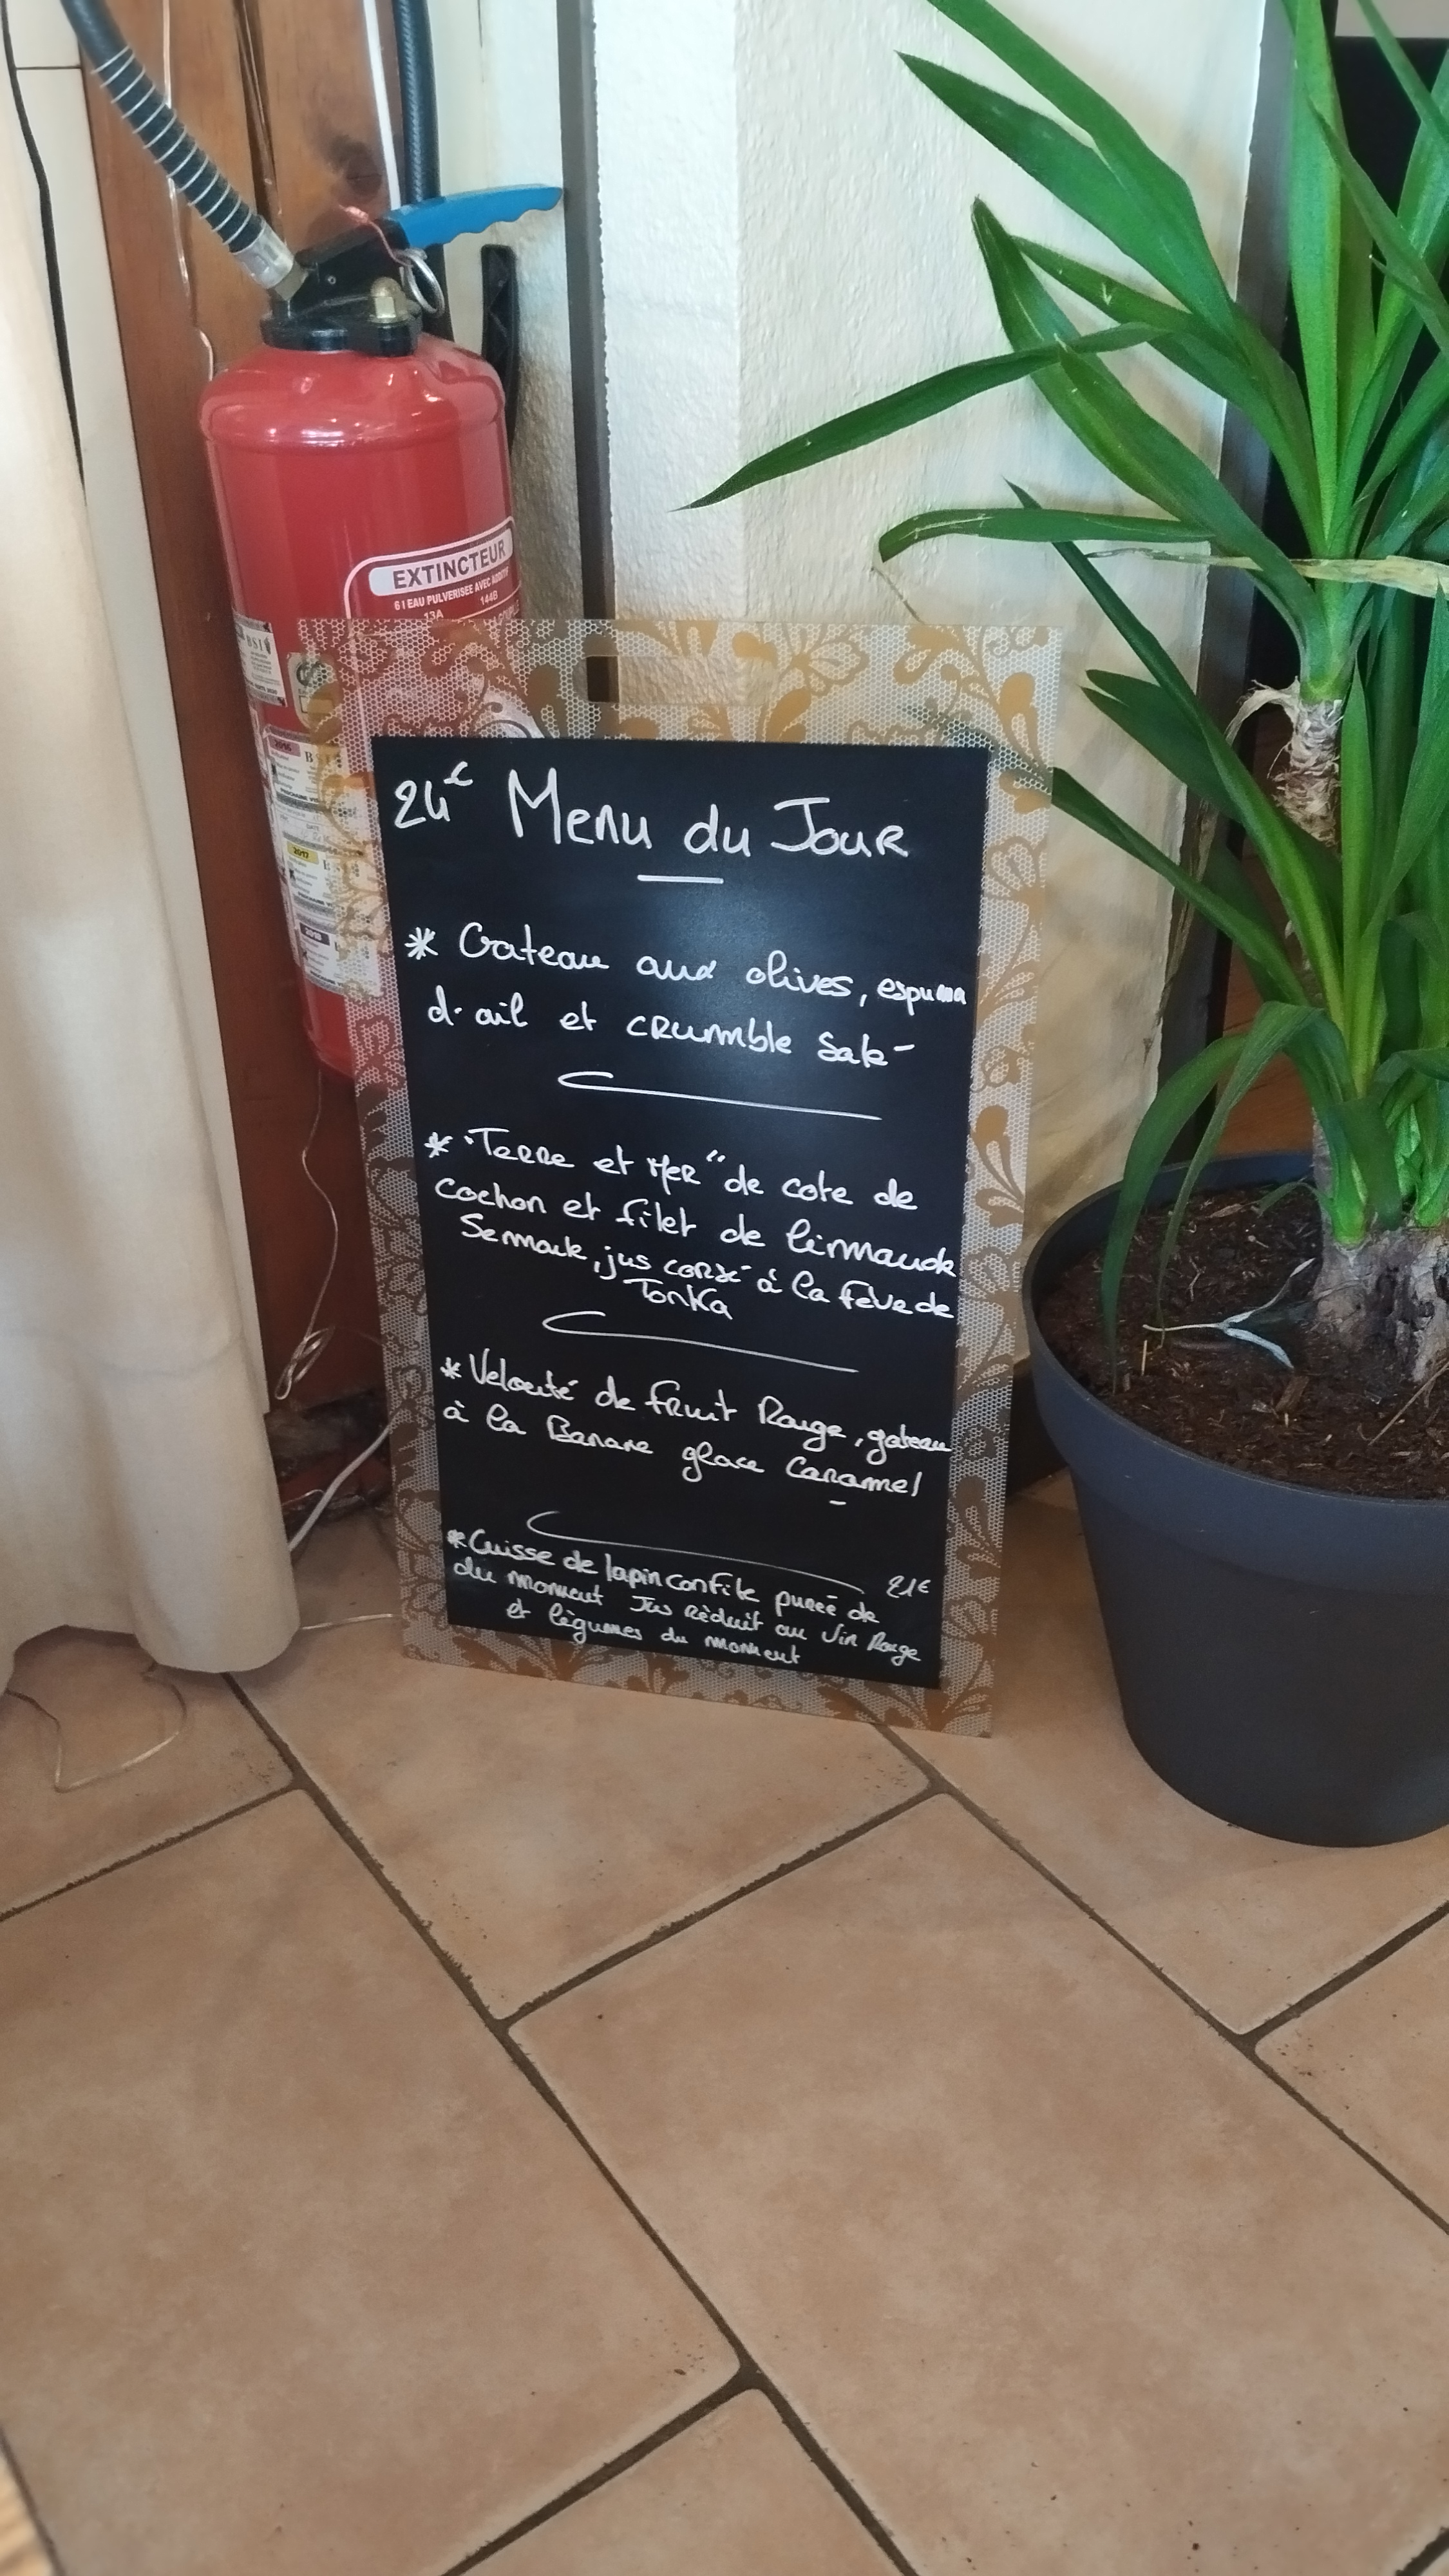 EXTINCTEUR
6 l EAU PULVERISEE AVEC ADDITIF
13A 144B
BSI
2017
24€ Menu du Jour
* Gateau aux olives, espuma
d'ail et crumble Salé
* "Terre et Mer" de cote de
Cochon et filet de limande
Semoule, jus corsé à la fève de
Tonka
* Velouté de fruit Rouge, gateau
à la Banane glace Caramel
21€
* Cuisse de lapin confite purée de
du moment Jus rèduit au Vin Rouge
et lègumes du moment